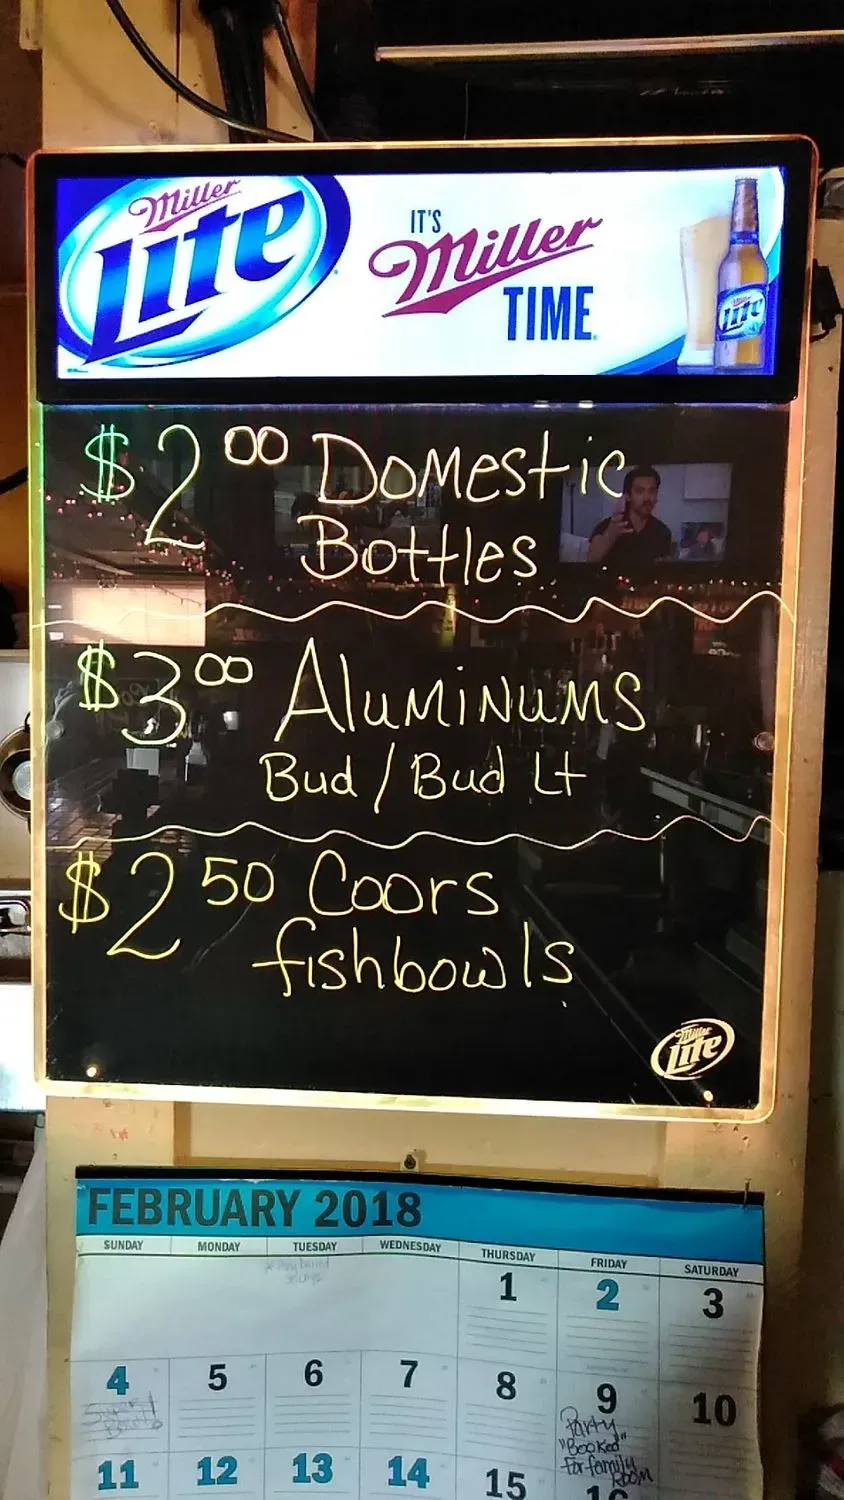 Miller
Lite
IT'S
Miller
TIME
Lite
$2.00 Domestic
Bottles
$3.00 Aluminums
Bud / Bud Lt
$2.50 Coors
fishbowls
Miller
Lite
FEBRUARY 2018
SUNDAY MONDAY TUESDAY WEDNESDAY THURSDAY FRIDAY SATURDAY
1 2 3
4 5 6 7 8 9 10
Super Bowl!
Party
"Booked"
For family
Room
11 12 13 14 15 16